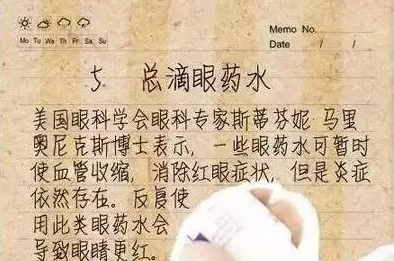 Memo No.
Mo Tu We Th Fr Sa Su
Date / /
5 总滴眼药水
美国眼科学会眼科专家斯蒂芬妮 马里
奥尼克斯博士表示，一些眼药水可暂时
使血管收缩，消除红眼症状，但是炎症
依然存在。反复使
用此类眼药水会
导致眼睛更红。